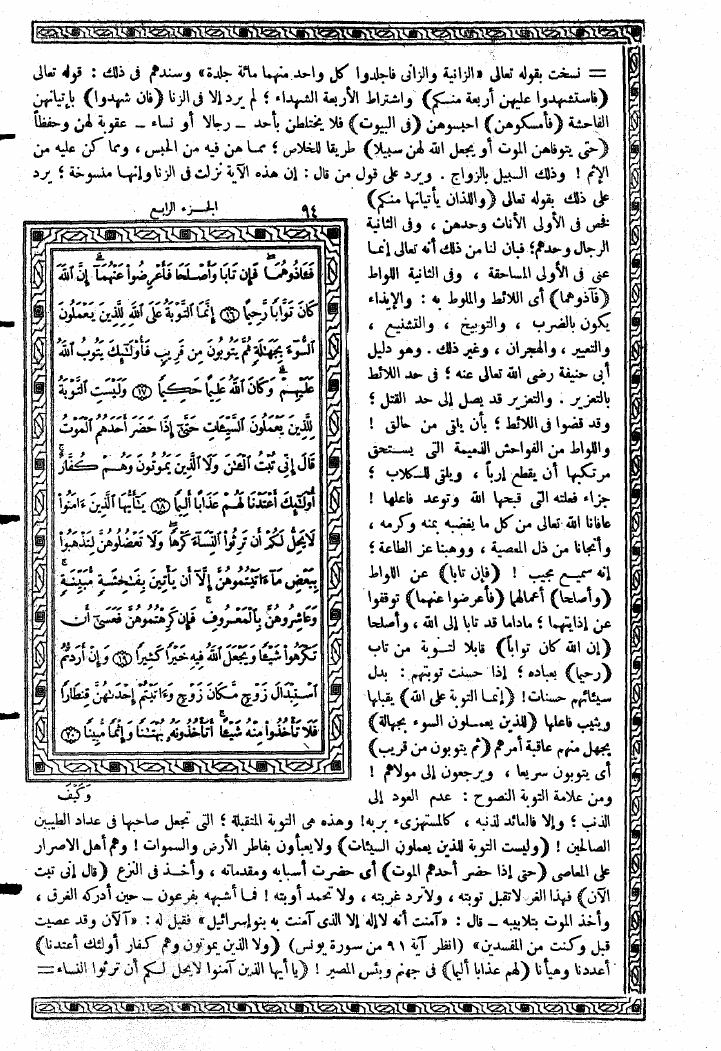 = نسخت بقوله تعالى «الزانية والزانى فاجلدوا كل واحد منهما مائة جلدة» وسندهم فى ذلك : قوله تعالى
(فاستشهدوا عليهن أربعة منكم) واشتراط الأربعة الشهداء ؛ لم يرد إلا فى الزنا (فان شهدوا) بإتيانهن
الفاحشة (فأمسكوهن) احبسوهن (فى البيوت) فلا يختلطن بأحد ـ رجالا أو نساء ـ عقوبة لهن وحفظاً
(حتى يتوفاهن الموت أو يجعل الله لهن سبيلا) طريقا للخلاص ؛ مما هن فيه من الحبس ، ومما كن عليه من
الإثم ! وذلك السبيل بالزواج . ويرد على قول من قال : إن هذه الآية نزلت فى الزنا وإنها منسوخة ؛ يرد
على ذلك بقوله تعالى (واللذان يأتيانها منكم)
فخص فى الأولى الأناث وحدهن ، وفى الثانية
الرجال وحدهم ؛ فبان لنا من ذلك أنه تعالى إنما
عنى فى الأولى المساحقة ، وفى الثانية اللواط
(فآذوهما) أى اللائط والملوط به : والإيذاء
يكون بالضرب ، والتوبيخ ، والتشنيع ،
والتعيير ، والهجران ، وغير ذلك . وهو دليل
أبى حنيفة رضى الله تعالى عنه ؛ فى حد اللائط
بالتعزير . والتعزير قد يصل إلى حد القتل ؛
وقد قضوا فى اللائط ؛ بأن يلقى من حالق !
واللواط من الفواحش الذميمة التى يستحق
مرتكبها أن يقطع إرباً ، ويلقى للكلاب ؛
جزاء فعلته التى قبحها الله وتوعد فاعلها !
عافانا الله تعالى من كل ما يغضبه بمنه وكرمه ،
وأنجانا من ذل المعصية ، ووهبنا عز الطاعة ؛
إنه سميع مجيب ! (فإن تابا) عن اللواط
(وأصلحا) أعمالهما (فأعرضوا عنهما) توقفوا
عن إذايتهما ؛ ماداما قد تابا إلى الله ، وأصلحا
(إن الله كان تواباً) قابلا لتوبة من تاب
(رحيما) بعباده ؛ إذا حسنت توبتهم : بدل
سيئاتهم حسنات! (إنما التوبة على الله) يقبلها
ويثيب فاعلها (للذين يعملون السوء بجهالة)
يجهل منهم عاقبة أمرهم (ثم يتوبون من قريب)
أى يتوبون سريعا ، ويرجعون إلى مولاهم !
ومن علامة التوبة النصوح : عدم العود إلى
الجزء الرابع ٩٤
فَـَٔاذُوهُمَا ۖ فَإِن تَابَا وَأَصْلَحَا فَأَعْرِضُوا۟ عَنْهُمَآ ۗ إِنَّ ٱللَّهَ
كَانَ تَوَّابًا رَّحِيمًا ⑯ إِنَّمَا ٱلتَّوْبَةُ عَلَى ٱللَّهِ لِلَّذِينَ يَعْمَلُونَ
ٱلسُّوٓءَ بِجَهَـٰلَةٍ ثُمَّ يَتُوبُونَ مِن قَرِيبٍ فَأُو۟لَـٰٓئِكَ يَتُوبُ ٱللَّهُ
عَلَيْهِمْ ۗ وَكَانَ ٱللَّهُ عَلِيمًا حَكِيمًا ⑰ وَلَيْسَتِ ٱلتَّوْبَةُ
لِلَّذِينَ يَعْمَلُونَ ٱلسَّيِّـَٔاتِ حَتَّىٰٓ إِذَا حَضَرَ أَحَدَهُمُ ٱلْمَوْتُ
قَالَ إِنِّى تُبْتُ ٱلْـَٔـٰنَ وَلَا ٱلَّذِينَ يَمُوتُونَ وَهُمْ كُفَّارٌ ۚ
أُو۟لَـٰٓئِكَ أَعْتَدْنَا لَهُمْ عَذَابًا أَلِيمًا ⑱ يَـٰٓأَيُّهَا ٱلَّذِينَ ءَامَنُوا۟
لَا يَحِلُّ لَكُمْ أَن تَرِثُوا۟ ٱلنِّسَآءَ كَرْهًا ۖ وَلَا تَعْضُلُوهُنَّ لِتَذْهَبُوا۟
بِبَعْضِ مَآ ءَاتَيْتُمُوهُنَّ إِلَّآ أَن يَأْتِينَ بِفَـٰحِشَةٍ مُّبَيِّنَةٍ ۚ
وَعَاشِرُوهُنَّ بِٱلْمَعْرُوفِ ۚ فَإِن كَرِهْتُمُوهُنَّ فَعَسَىٰٓ أَن
تَكْرَهُوا۟ شَيْـًٔا وَيَجْعَلَ ٱللَّهُ فِيهِ خَيْرًا كَثِيرًا ⑲ وَإِنْ أَرَدتُّمُ
ٱسْتِبْدَالَ زَوْجٍ مَّكَانَ زَوْجٍ وَءَاتَيْتُمْ إِحْدَىٰهُنَّ قِنطَارًا
فَلَا تَأْخُذُوا۟ مِنْهُ شَيْـًٔا ۚ أَتَأْخُذُونَهُۥ بُهْتَـٰنًا وَإِثْمًا مُّبِينًا ⑳
وَكَيْفَ
الذنب ؛ وإلا فالعائد لذنبه ، كالمستهزىء بربه! وهذه هى التوبة المتقبلة ؛ التى تجعل صاحبها فى عداد الطيبين
الصالحين ! (وليست التوبة للذين يعملون السيئات) ولايعبأون بفاطر الأرض والسموات ! وهم أهل الاصرار
على المعاصى (حتى إذا حضر أحدهم الموت) أى حضرت أسبابه ومقدماته ، وأخذ فى النزع (قال إنى تبت
الآن) فهذا الغر لاتقبل توبته ، ولاترد غربته ، ولا تحمد أوبته ! فما أشبهه بفرعون ـ حين أدركه الغرق ،
وأخذ الموت بتلابيبه ـ قال : «آمنت أنه لاإله إلا الذى آمنت به بنو إسرائيل» فقيل له : «آلآن وقد عصيت
قبل وكنت من المفسدين» (انظر آية ٩١ من سورة يونس) (ولا الذين يموتون وهم كفار أولئك أعتدنا)
أعددنا وهيأنا (لهم عذابا أليما) فى جهنم وبئس المصير ! (يا أيها الذين آمنوا لايحل لكم أن ترثوا النساء =